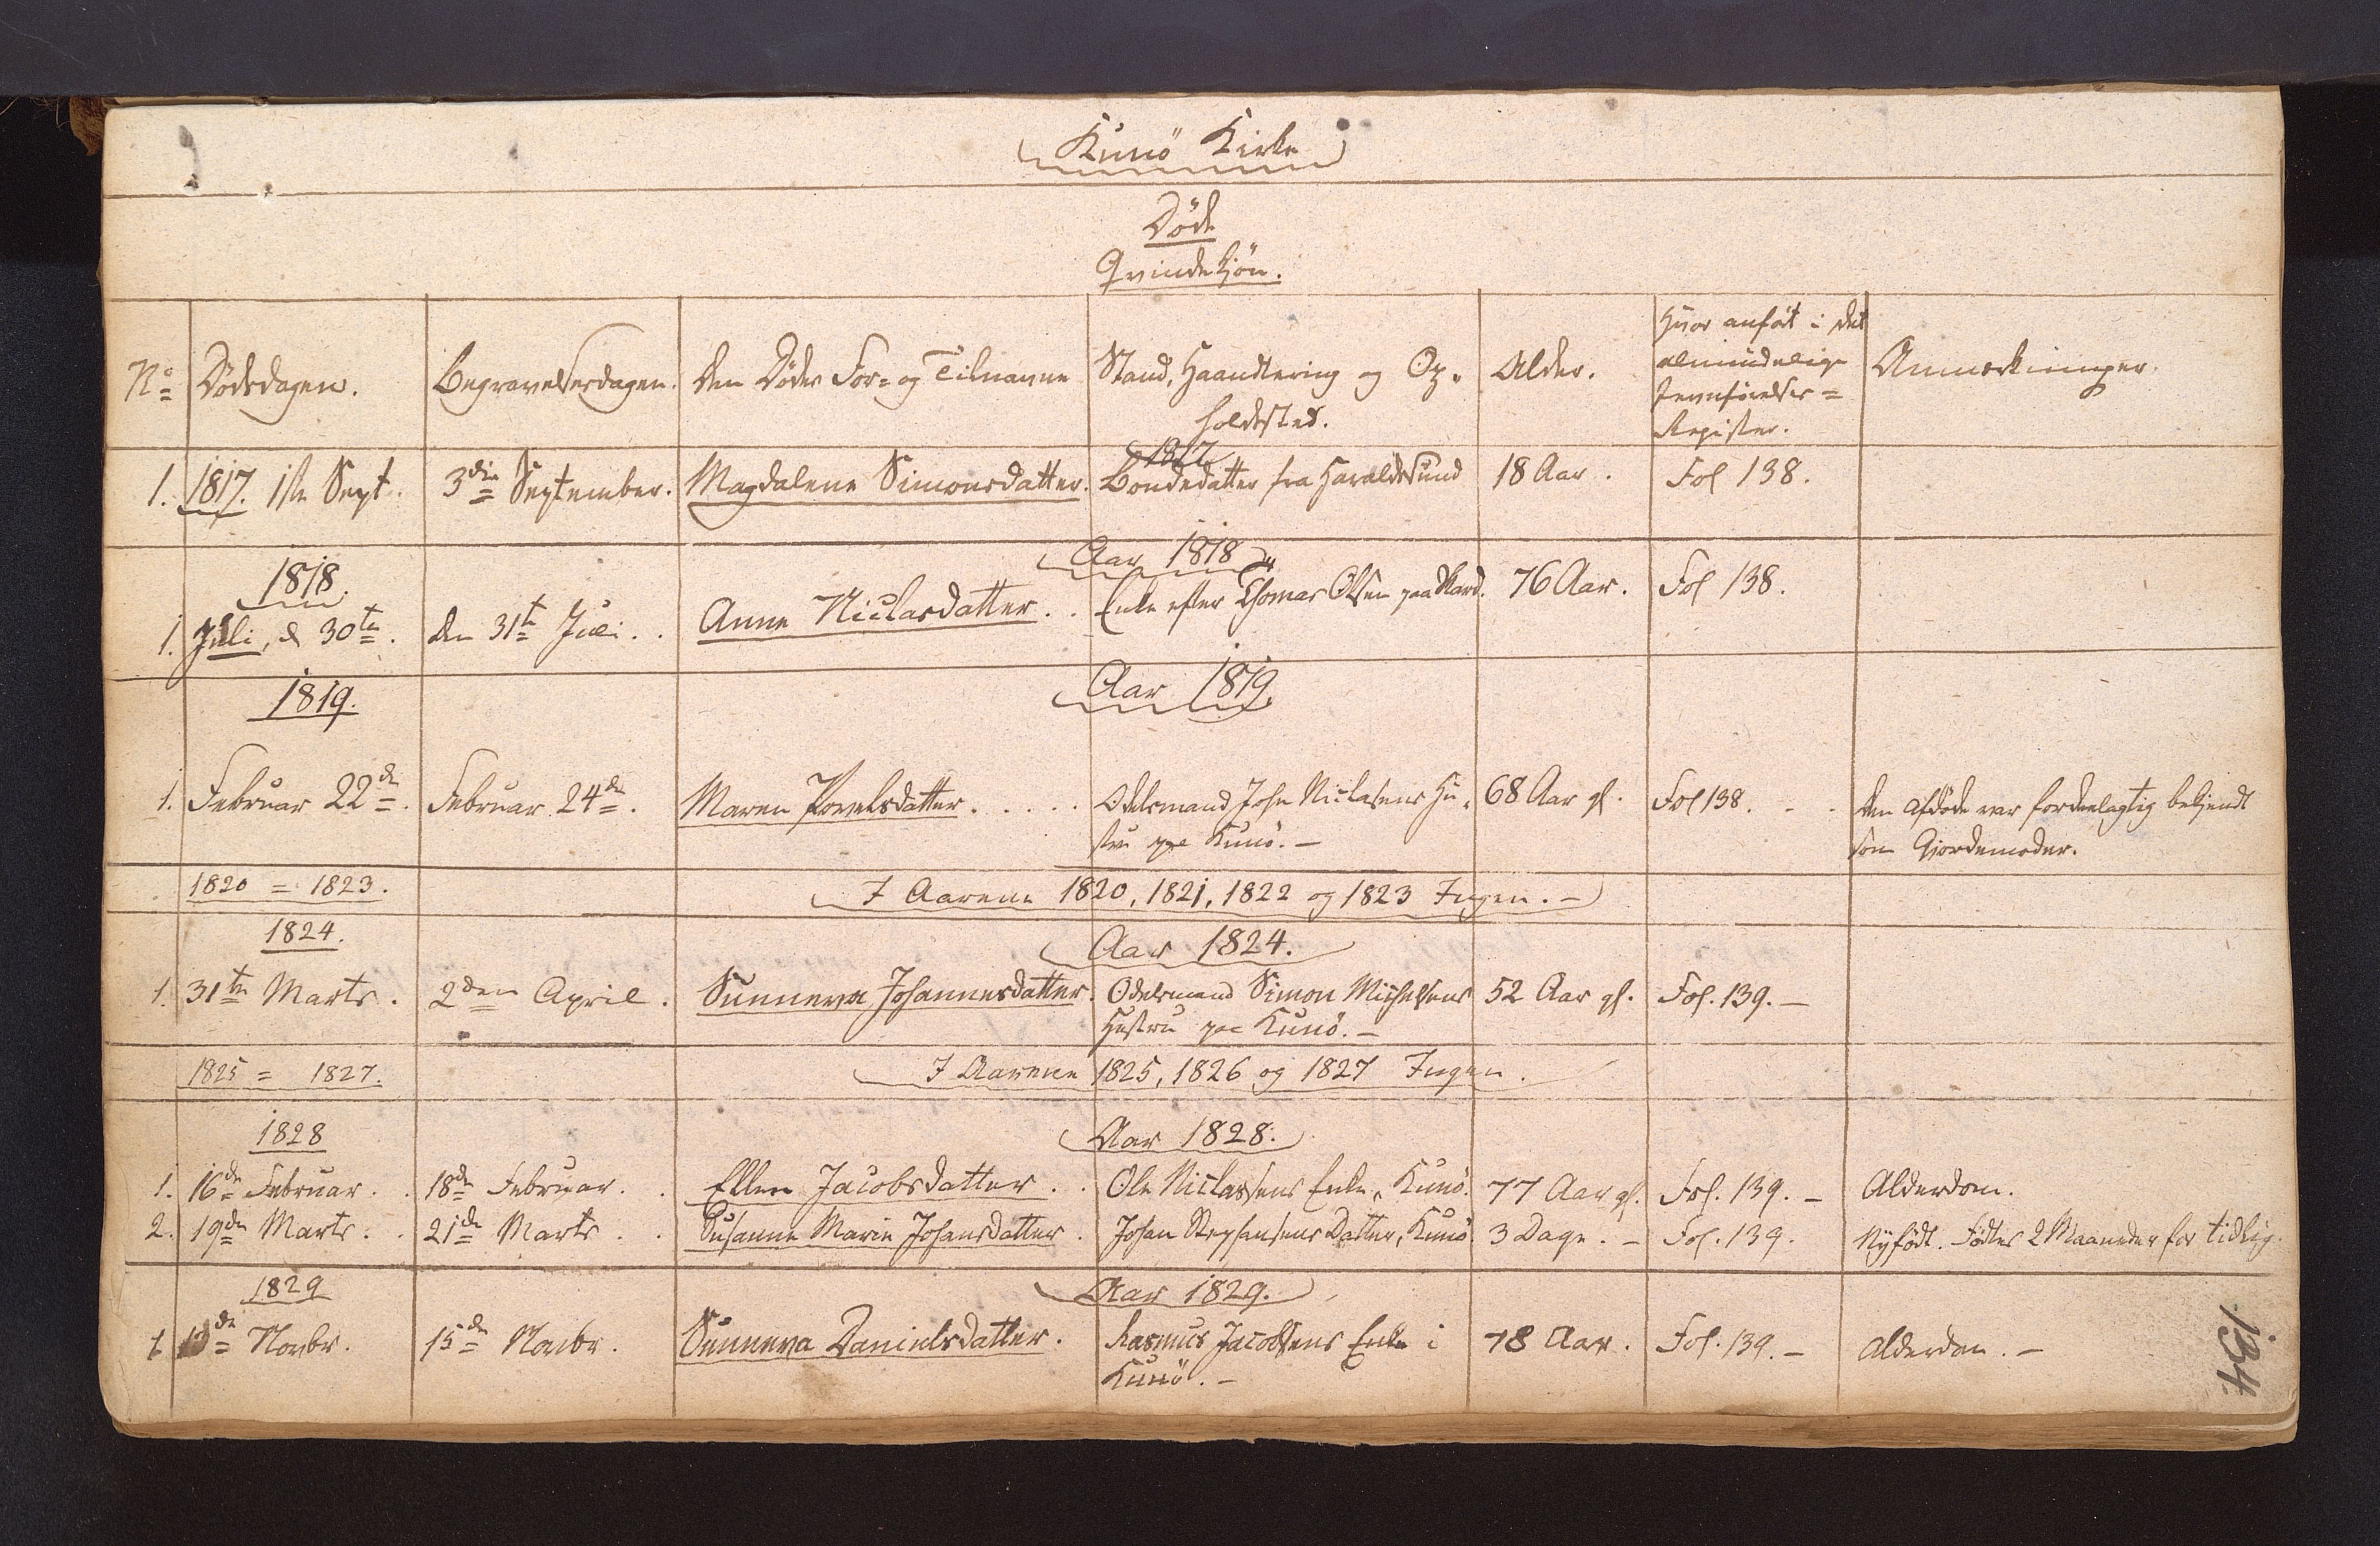 Kunö Kirke
Döde
Qvindekjön.
No Dödsdagen. Begravelsesdagen. Den Dödes For- og Tilnavne Stand, Haandtering og Op- Alder. Hvor anfört i det Anmærkninger.
holdsted. almindelige
Jevnförelses-
Register.
1817
1. 1817. 1ste Sept. 3die September. Magdalene Simonsdatter. Bondedatter fra Haraldssund 18 Aar. Fol 138.
1818. Aar 1818
1. Juli, d 30te. den 31te Juli. . Anne Niclasdatter. . Enke efter Thomas Olsen paa Skard. 76 Aar. Fol 138.
1819. Aar 1819.
1. Februar 22de. Februar 24de. Maren Povelsdatter. . . . . Odelsmand Joh Niclasens Hu- 68 Aar gl. Fol 138. - . Den Afdöde var fordeelagtig bekjendt
stru paa Kunö. — som Gjordemoder.
1820 = 1823. I Aarene 1820, 1821, 1822 og 1823 Ingen. —
1824. Aar 1824.
1. 31te Marts. 2den April. Sunneva Johannesdatter. Odelsmand Simon Michelsens 52 Aar gl. Fol. 139. —
Hustru paa Kunö. —
1825 = 1827. I Aarene 1825, 1826 og 1827 Ingen.
1828 Aar 1828.
1. 16de Februar. . 18de Februar. . Ellen Jacobsdatter. . Ole Niclassens Enke, Kunö. 77 Aar gl. Fol. 139. — Alderdom.
2. 19de Marts. . 21de Marts. . Susanne Marie Johansdatter. Johan Stephansens Datter, Kunö 3 Dage. — Fol. 139. Nyfödt. Födtes 2 Maaneder for tidlig.
1829 Aar 1829.
1 13de Novbr. 15de Novbr. Sunneva Danielsdatter. Rasmus Jacobsens Enke i 78 Aar. Fol. 139. — Alderdom. —
Kunö. —
134.